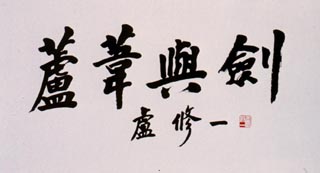 蘆葦與劍
盧修一